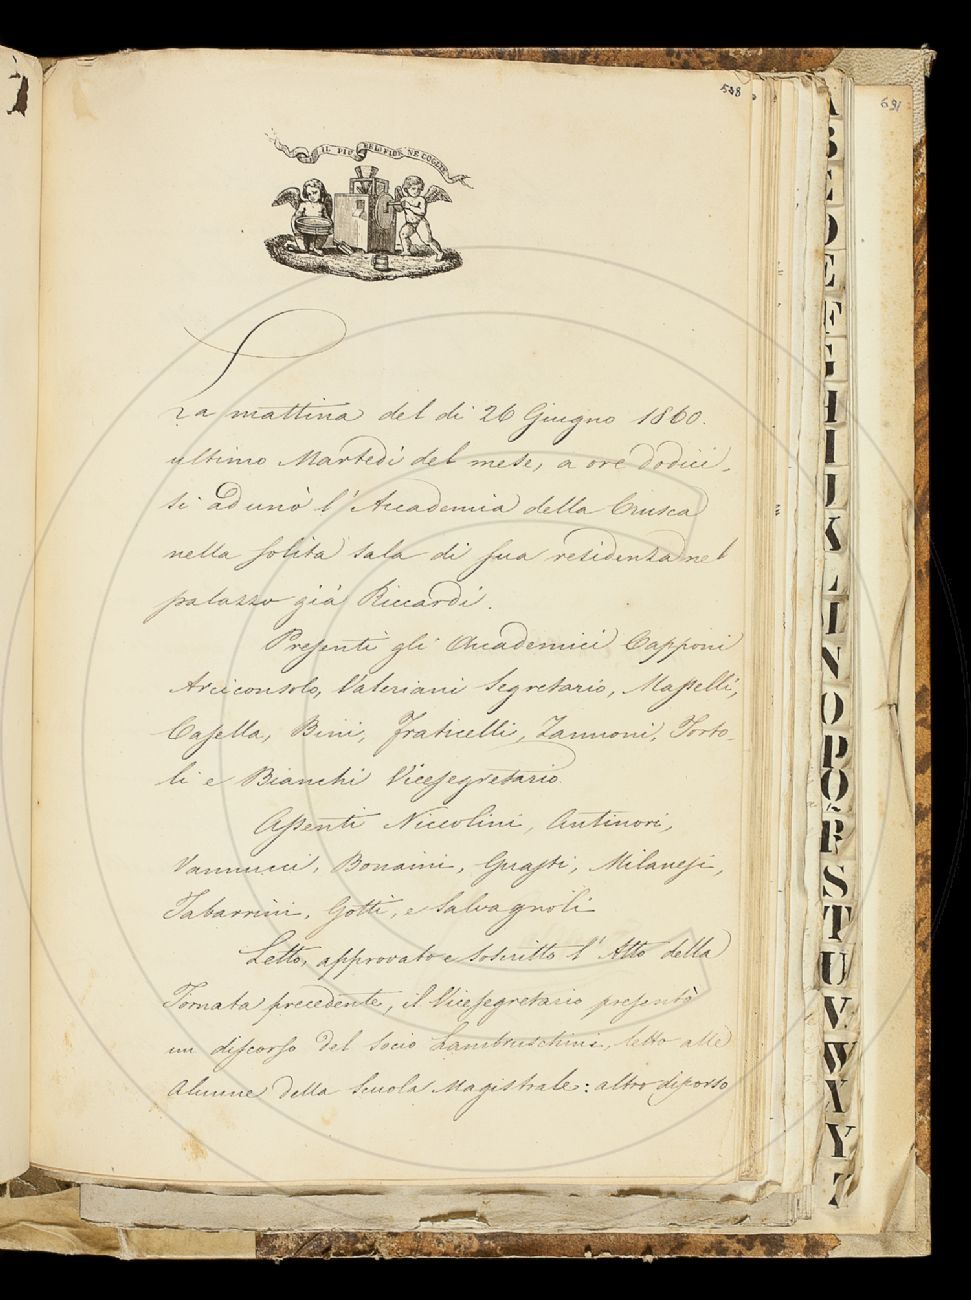 548
691
IL PIÙ BEL FIOR NE COGLIE
La mattina del dì 26 Giugno 1860.
ultimo Martedì del mese, a ore dodici,
si adunò l'Accademia della Crusca
nella solita sala di sua residenza nel
palazzo già Riccardi.
Presenti gli Accademici Capponi
Arciconsolo, Valeriani Segretario, Masselli,
Casella, Bini, Fraticelli, Zannoni, Torto-
li e Bianchi Vicesegretario.
Assenti Niccolini, Antinori,
Vannucci, Bonaini, Grassi, Milanesi,
Tabarrini, Gotti, e Salvagnoli
Letto, approvato e soscritto l'Atto della
Tornata precedente, il Vicesegretario presentò
un discorso del Socio Lambruschini, letto alle
Alunne della Scuola Magistrale: altro discorso
A
B
C
D
E
F
G
H
I
J
K
L
M
N
O
P
Q
R
S
T
U
V
W
X
Y
Z